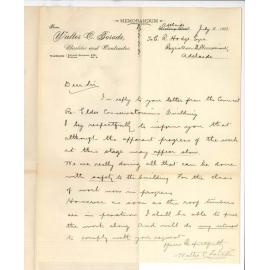 MEMORANDUM
From
Walter C. Torode,
Builder and Contractor
Adelaide
July 5, 1899
To C. R. Hodge Esqre
Registrar University,
Adelaide
Dear Sir
In reply to your letter from the Council
Re Elder Conservatorium Building
I beg respectfully to inform you that
although the apparent progress of the work
at this stage may appear slow
We are really doing all that can be done
with safety to the building. For the class
of work now in progress
However as soon as the roof timbers
are in position I shall be able to push
the work along And will do my utmost
to comply with your request
Yours Respectfully
Walter C. Torode